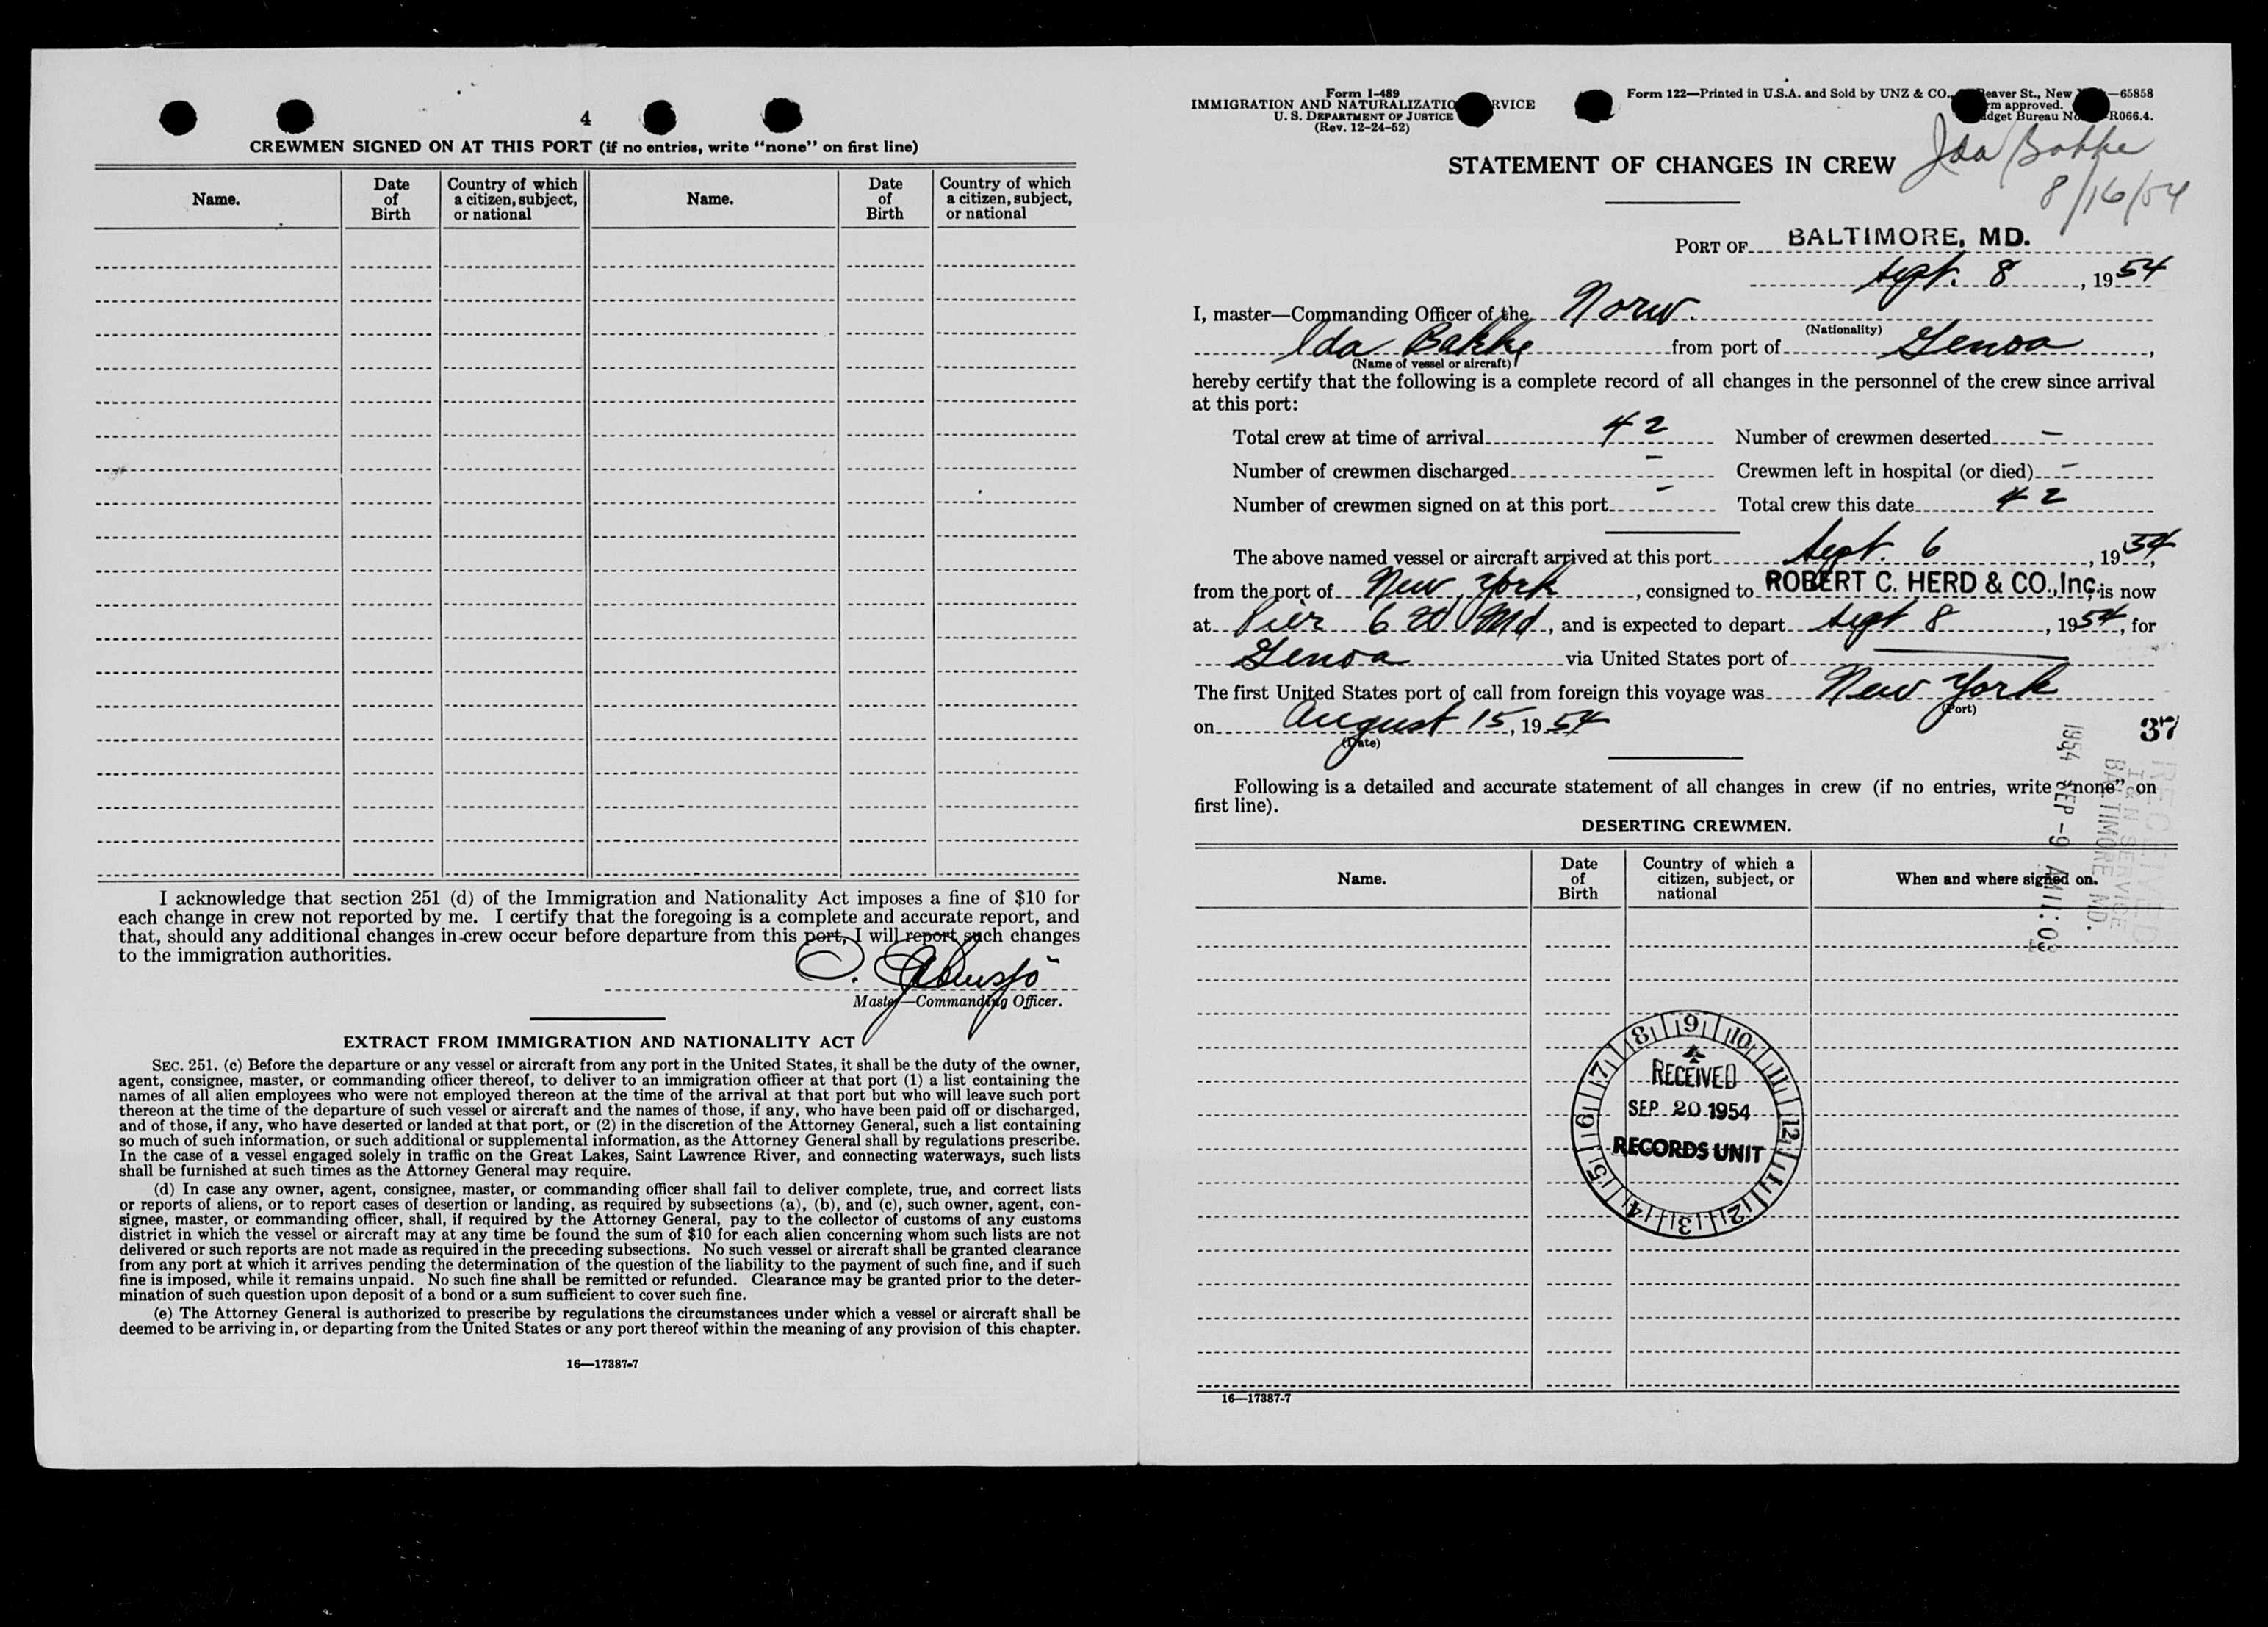 4
CREWMEN SIGNED ON AT THIS PORT (if no entries, write "none" on first line)
Name.
Date of Birth
Country of which a citizen, subject, or national
Name.
Date of Birth
Country of which a citizen, subject, or national
I acknowledge that section 251 (d) of the Immigration and Nationality Act imposes a fine of $10 for
each change in crew not reported by me. I certify that the foregoing is a complete and accurate report, and
that, should any additional changes in crew occur before departure from this port, I will report such changes
to the immigration authorities.
Master—Commanding Officer.
EXTRACT FROM IMMIGRATION AND NATIONALITY ACT
SEC. 251. (c) Before the departure or any vessel or aircraft from any port in the United States, it shall be the duty of the owner,
agent, consignee, master, or commanding officer thereof, to deliver to an immigration officer at that port (1) a list containing the
names of all alien employees who were not employed thereon at the time of the arrival at that port but who will leave such port
thereon at the time of the departure of such vessel or aircraft and the names of those, if any, who have been paid off or discharged,
and of those, if any, who have deserted or landed at that port, or (2) in the discretion of the Attorney General, such a list containing
so much of such information, or such additional or supplemental information, as the Attorney General shall by regulations prescribe.
In the case of a vessel engaged solely in traffic on the Great Lakes, Saint Lawrence River, and connecting waterways, such lists
shall be furnished at such times as the Attorney General may require.
(d) In case any owner, agent, consignee, master, or commanding officer shall fail to deliver complete, true, and correct lists
or reports of aliens, or to report cases of desertion or landing, as required by subsections (a), (b), and (c), such owner, agent, con-
signee, master, or commanding officer, shall, if required by the Attorney General, pay to the collector of customs of any customs
district in which the vessel or aircraft may at any time be found the sum of $10 for each alien concerning whom such lists are not
delivered or such reports are not made as required in the preceding subsections. No such vessel or aircraft shall be granted clearance
from any port at which it arrives pending the determination of the question of the liability to the payment of such fine, and if such
fine is imposed, while it remains unpaid. No such fine shall be remitted or refunded. Clearance may be granted prior to the deter-
mination of such question upon deposit of a bond or a sum sufficient to cover such fine.
(e) The Attorney General is authorized to prescribe by regulations the circumstances under which a vessel or aircraft shall be
deemed to be arriving in, or departing from the United States or any port thereof within the meaning of any provision of this chapter.
16—17387-7
Form I-489
IMMIGRATION AND NATURALIZATIO RVICE
U. S. DEPARTMENT OF JUSTICE
(Rev. 12-24-52)
Form 122—Printed in U.S.A. and Sold by UNZ & CO., eaver St., New —65858
rm approved.
dget Bureau No R066.4.
STATEMENT OF CHANGES IN CREW
Ida Bakke
8/16/54
PORT OF BALTIMORE, MD.
Sept. 8, 1954
I, master—Commanding Officer of the Norw.
(Nationality)
Ida Bakke from port of Genoa,
(Name of vessel or aircraft)
hereby certify that the following is a complete record of all changes in the personnel of the crew since arrival
at this port:
Total crew at time of arrival 42 Number of crewmen deserted –
Number of crewmen discharged – Crewmen left in hospital (or died) –
Number of crewmen signed on at this port – Total crew this date 42
The above named vessel or aircraft arrived at this port Sept. 6, 1954,
from the port of New York, consigned to ROBERT C. HERD & CO., Inc. is now
at Pier 6 Md, and is expected to depart Sept 8, 1954, for
Genoa via United States port of —
The first United States port of call from foreign this voyage was New York
(Port)
on August 15, 1954
(Date)
37
RECEIVED
I & N SERVICE
BALTIMORE MD.
1954 SEP -9 AM 11:03
Following is a detailed and accurate statement of all changes in crew (if no entries, write "none" on
first line).
DESERTING CREWMEN.
Name.
Date of Birth
Country of which a citizen, subject, or national
When and where signed on.
8 9 10 11 12 1 2 3 4 5 6 7
RECEIVED
SEP 20 1954
RECORDS UNIT
16—17387-7